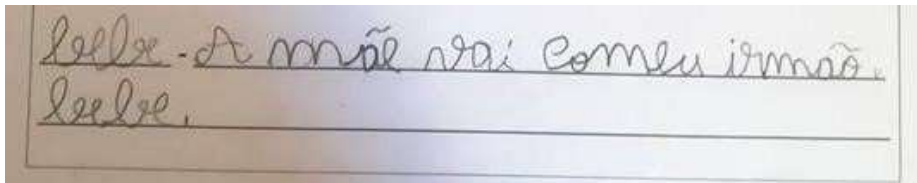 bebe. A mãe vai comeu irmão.
bebe.